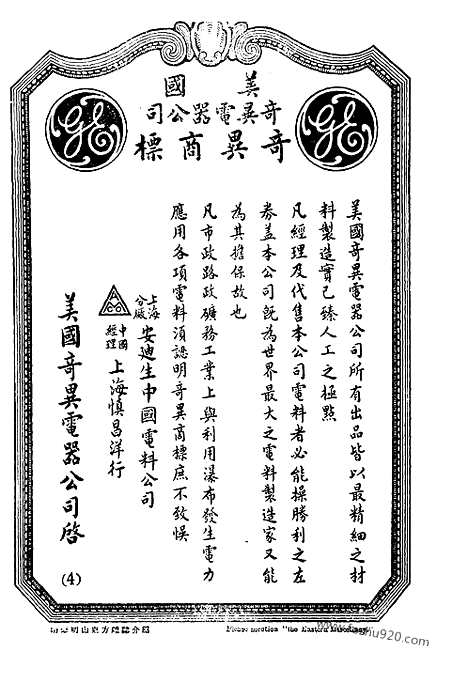 美國
奇異電器公司
奇異商標
GE
GE
美國奇異電器公司所有出品皆以最精細之材
料製造實已臻人工之極點
凡經理及代售本公司電料者必能操勝利之左
券蓋本公司既為世界最大之電料製造家又能
為其擔保故也
凡市政路政礦務工業上與利用瀑布發生電力
應用各項電料須認明奇異商標庶不致悞
上海分廠 安迪生中國電料公司
中國經理 上海慎昌洋行
美國奇異電器公司啓
(4)
Please mention "the Eastern Miscellany"